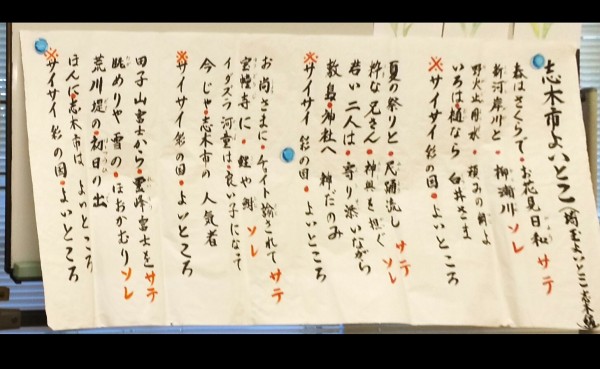 志木市よいとこ(埼玉よいとこ志木編)
春はさくらで・お花見日和 サテ
新河岸川と・柳瀬川 ソレ
野火止用水・頼みの絆よ
いろは樋なら 白井さま
※サイサイ 彩の国・よいところ
夏の祭りと・尺踊流し サテ
粋な兄さん・神輿を担ぐ ソレ
若い二人は・寄り添いながら
敷島神社へ 神だのみ
※サイサイ 彩の国・よいところ
お尚さまに・チョイト諭されて サテ
宝幢寺に・鯉や鮒 ソレ
イタズラ河童は・良い子になって
今じゃ・志木市の 人気者
※サイサイ 彩の国・よいところ
田子山富士から・霊峰富士を サテ
眺めりや 雪の・ほおかむり ソレ
荒川堤の・初日の出
ほんに・志木市は よいところ
※サイサイ 彩の国・よいところ